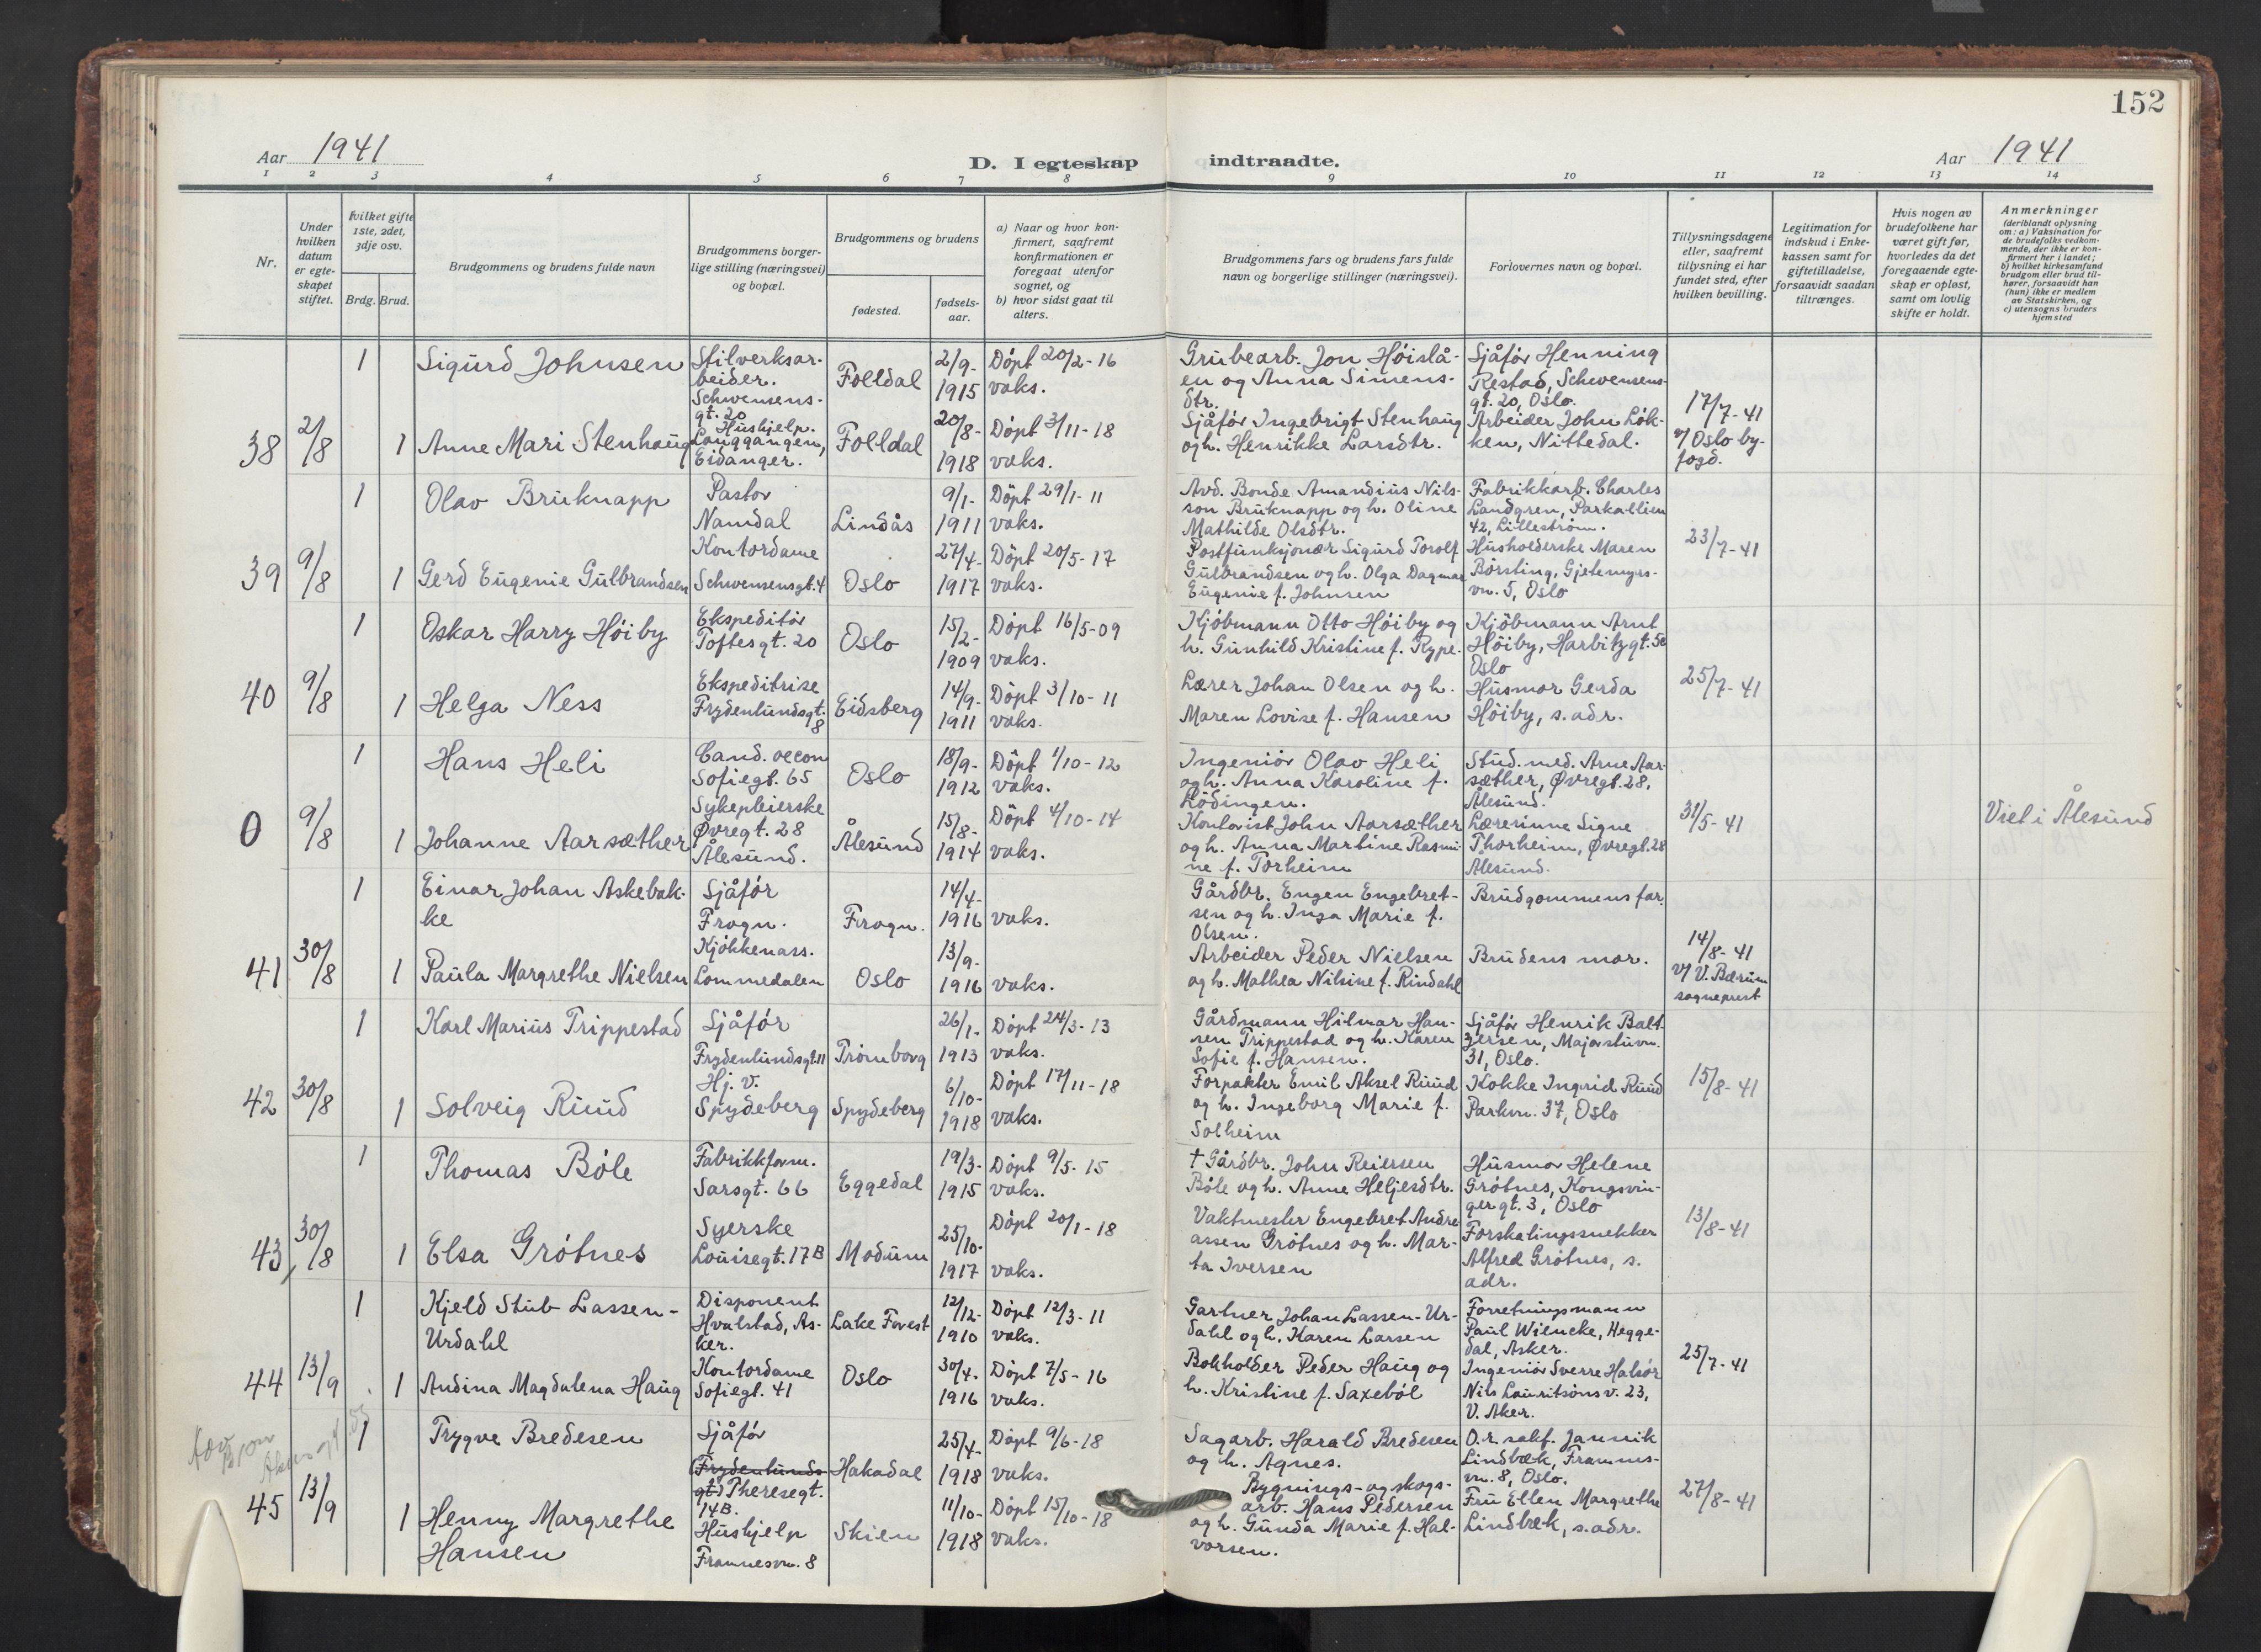 152
Aar 1941
D. I egteskap indtraadte.
Aar 1941
1 2 3 4 5 6 7 8 9 10 11 12 13 14
Nr.
Under hvilken datum er egteskapet stiftet.
Hvilket gifte 1ste, 2det, 3dje osv.
Brdg. Brud.
Brudgommens og brudens fulde navn
Brudgommens borgerlige stilling (næringsvei) og bopæl.
Brudgommens og brudens
fødested.
fødselsaar.
a) Naar og hvor konfirmert, saafremt konfirmationen er foregaat utenfor sognet, og
b) hvor sidst gaat til alters.
Brudgommens fars og brudens fars fulde navn og borgerlige stillinger (næringsvei).
Forlovernes navn og bopæl.
Tillysningsdagene eller, saafremt tillysning ei har fundet sted, efter hvilken bevilling.
Legitimation for indskud i Enkekassen samt for giftetilladelse, forsaavidt saadan tiltrænges.
Hvis nogen av brudefolkene har været gift før, hvorledes da det foregaaende egteskap er opløst, samt om lovlig skifte er holdt.
Anmerkninger
(deriblandt oplysning om: a) Vaksination for de brudefolks vedkommende, der ikke er konfirmert her i landet; b) hvilket kirkesamfund brudgom eller brud tilhører, forsaavidt han (hun) ikke er medlem av Statskirken, og c) utensogns bruders hjemsted
1 Sigurd Johnsen Stilverksarbeider. Schwensensgt. 20 Folldal 2/9-1915 Döpt 20/2-16 vaks. Grubearb. Jon Höislåen og Anna Simensdtr. Sjåför Henning Restad, Schwensensgt. 20, Oslo.
38 2/8 1 Anne Mari Stenhaug Hushjelp. Langgangen, Eidanger. Folldal 20/8-1918 Döpt 3/11-18 vaks. Sjåför Ingebrigt Stenhaug og h. Henrikke Larsdtr. Arbeider John Lökken, Nittedal. 17/7-41 v/ Oslo byfogd.
1 Olav Bruknapp Pastor Namdal Lindås 9/1-1911 Döpt 29/1-11 vaks. Avd. Bonde Amandius Nilsson Bruknapp og h. Oline Mathilde Olsdtr. Fabrikkarb. Charles Landgren, Parkalleen 42, Lilleström.
39 9/8 1 Gerd Eugenie Gulbrandsen Kontordame Schwensensgt. 4 Oslo 27/4-1917 Döpt 20/5-17 vaks. Postfunksjonær Sigurd Torolf Gulbrandsen og h. Olga Dagmar Eugenie f. Johnsen Husholderske Maren Börsting, Gjetemyrsvn. 5, Oslo 23/7-41
1 Oskar Harry Höiby Ekspeditör Toftesgt. 20 Oslo 15/2-1909 Döpt 16/5-09 vaks. Kjöbmann Otto Höiby og h. Gunhild Kristine f. Rype. Kjöbmann Arnt Höiby, Harbitzgt. 5c Oslo
40 9/8 1 Helga Ness Ekspeditrise Frydenlundsgt. 8 Eidsberg 14/9-1911 Döpt 3/10-11 vaks. Lærer Johan Olsen og h. Maren Lovise f. Hansen Husmor Gerda Höiby, s. adr. 25/7-41
1 Hans Heli Cand. oecon Sofiegt. 65 Oslo 18/9-1912 Döpt 1/10-12 vaks. Ingeniör Olav Heli og h. Anna Karoline f. Lödingen. Stud. med. Arne Aarsæther, Øvregt. 28, Ålesund.
0 9/8 1 Johanne Aarsæther Sykepleierske Øvregt. 28 Ålesund. Ålesund 15/8-1914 Döpt 4/10-14 vaks. Kontorist John Aarsæther og h. Anna Martine Rasmine f. Torheim Lærerinne Signe Thorheim, Øvregt. 28 Ålesund. 31/5-41 Viet i Ålesund
1 Einar Johan Askebakke Sjåför Frogn. Frogn. 14/4-1916 vaks. Gårdbr. Engen Engebretsen og h. Inga Marie f. Olsen. Brudgommens far.
41 30/8 1 Paula Margrethe Nielsen Kjökkenass. Lommedalen Oslo 13/9-1916 vaks. Arbeider Peder Nielsen og h. Mathea Nilsine f. Rindahl Brudens mor. 14/8-41 v/ V. Bærum sogneprest
1 Karl Marius Trippestad Sjåför Frydenlundsgt. 11 Trömborg 26/1-1913 Döpt 24/3-13 vaks. Gårdmann Hilmar Hansen Trippestad og h. Karen Sofie f. Hansen. Sjåför Henrik Baltzersen, Majorstuvn. 31, Oslo.
42 30/8 1 Solveig Ruud Hj. v. Spydeberg Spydeberg 6/10-1918 Döpt 17/11-18 vaks. Forpakter Emil Aksel Ruud og h. Ingeborg Marie f. Solheim Kokke Ingrid Ruud Parkvn. 37, Oslo 15/8-41
1 Thomas Böle Fabrikkform. Sarsgt. 66 Eggedal 19/3-1915 Döpt 9/5-15 vaks. † Gårdbr. John Reiersen Böle og h. Anne Heljesdtr. Husmor Helene Grötnes, Kongsvingergt. 3, Oslo
43 30/8 1 Elsa Grötnes Syerske Louisegt. 17B Modum 25/10-1917 Döpt 20/1-18 vaks. Vaktmester Engebret Andreassen Grötnes og h. Marta Iversen Forskalingssnekker Alfred Grötnes, s. adr. 13/8-41
1 Kjeld Stub Lassen-Urdahl Disponent Hvalstad, Asker. Lake Forest 12/12-1910 Döpt 12/3-11 vaks. Gartner Johan Lassen-Urdahl og h. Karen Larsen Forretningsmann Paul Wiencke, Heggedal, Asker.
44 13/9 1 Andina Magdalena Haug Kontordame Sofiegt. 41 Oslo 30/4-1916 Döpt 7/5-16 vaks. Bokholder Peder Haug og h. Kristine f. Saxeböl Ingeniör Sverre Halsör Nils Lauritsöns v. 23, V. Aker. 25/7-41
1 Trygve Bredesen Sjåför (Frydenlundsgt.) Theresegt. 14B. Hakadal 25/4-1918 Döpt 9/6-18 vaks. Sagarb. Harald Bredesen og h. Agnes. O.r. sakf. Jannik Lindbæk, Framnesvn. 8, Oslo.
45 13/9 1 Henny Margrethe Hansen Hushjelp Framnesvn. 8 Skien 11/10-1918 Döpt 15/10-18 vaks. Bygnings- og skogsarb. Hans Pedersen og h. Gunda Marie f. Halvorsen. Fru Ellen Margrethe Lindbæk, s. adr. 27/8-41